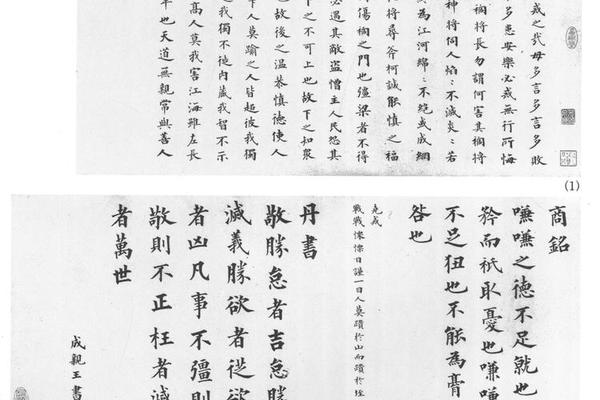 戒之哉毋多言多言多敗
多患安樂必戒無行所悔
禍將長勿謂何害其禍將
神將伺人焰〻不滅炎〻若
終為江河緜〻不絕或成網
將尋斧柯誠能慎之福
傷禍之門也彊梁者不得
必遇其敵盜憎主人民怨其
下之不可上也故下之知衆
也故後之溫恭慎德使人
下人莫踰之人皆趨彼我獨
之我獨不徙內藏我智不示
高人莫我害江海雖左長
卑也天道無親常與善人
(1)
商銘
嗛嗛之德不足就也
矜而祇取憂也嗛嗛
不足狃也不能為膏
咎也
堯戒
戰戰慄慄日謹一日人莫躓於山而躓於垤
丹書
敬勝怠者吉怠勝
滅義勝欲者從欲
者凶凡事不彊則
敬則不正枉者滅
者萬世
成親王書